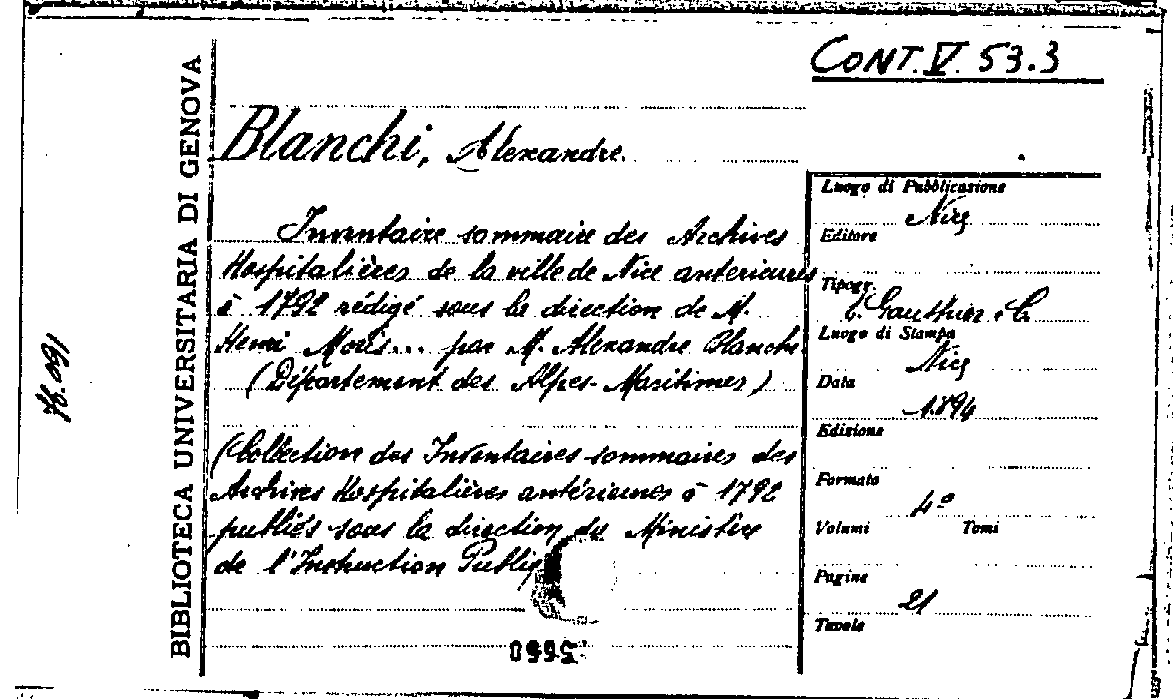 CONT. V. 53.3
BIBLIOTECA UNIVERSITARIA DI GENOVA
Blanchi, Alexandre.
Inventaire sommaire des Archives
Hospitalières de la ville de Nice anterieures
à 1792 rédigé sous la direction de M.
Henri Moris... par M. Alexandre Blanchi
(Département des Alpes-Maritimes)
(Collection des Inventaires sommaires des
Archives Hospitalières antérieures à 1792
publiés sous la direction du Ministère
de l'Instruction Publiq
Luogo di Pubblicazione
Nice
Editore
Tipogr.
Gauthier & C.
Luogo di Stampa
Nice
Data
1894
Edizione
Formato
4º
Volumi Tomi
Pagine
21
Tavole
76.091